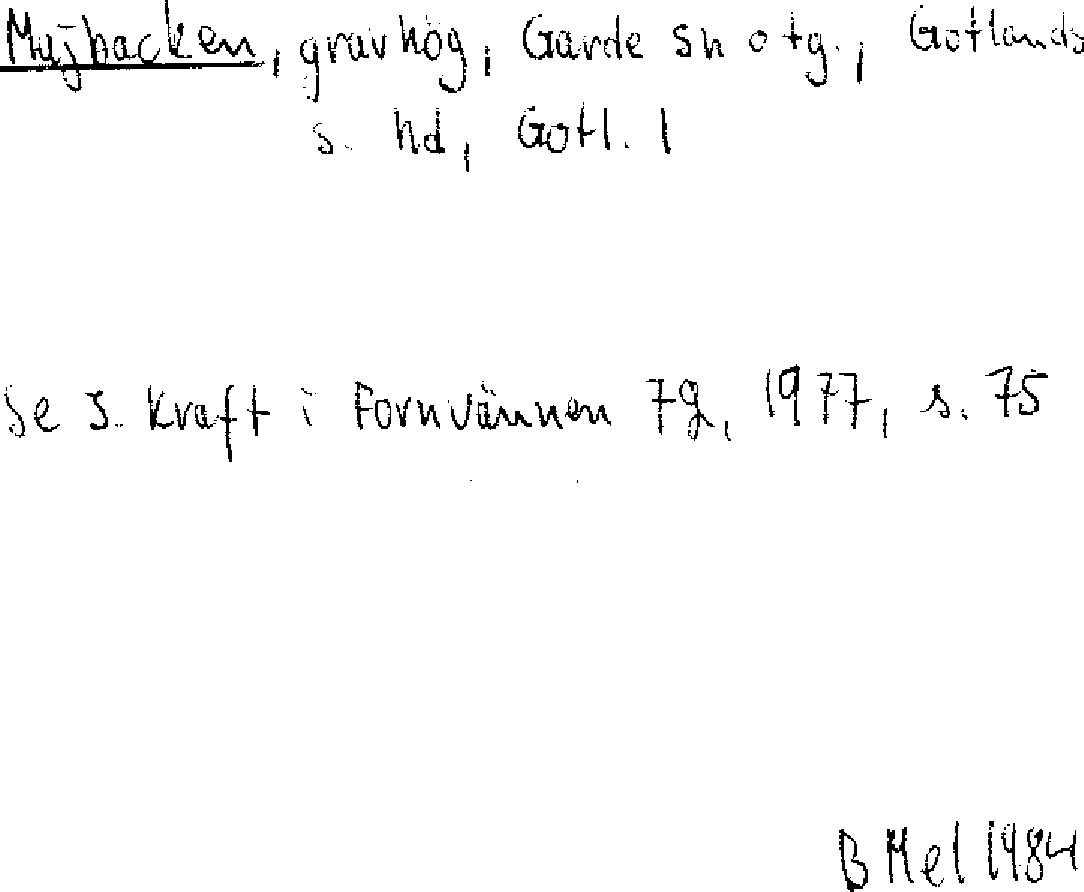 Majbacken, gravhög, Garde sn o tg., Gotlands
s. hd, Gotl. l
Se J. Kraft i Fornvännen 72, 1977, s. 75
B Mel 1984